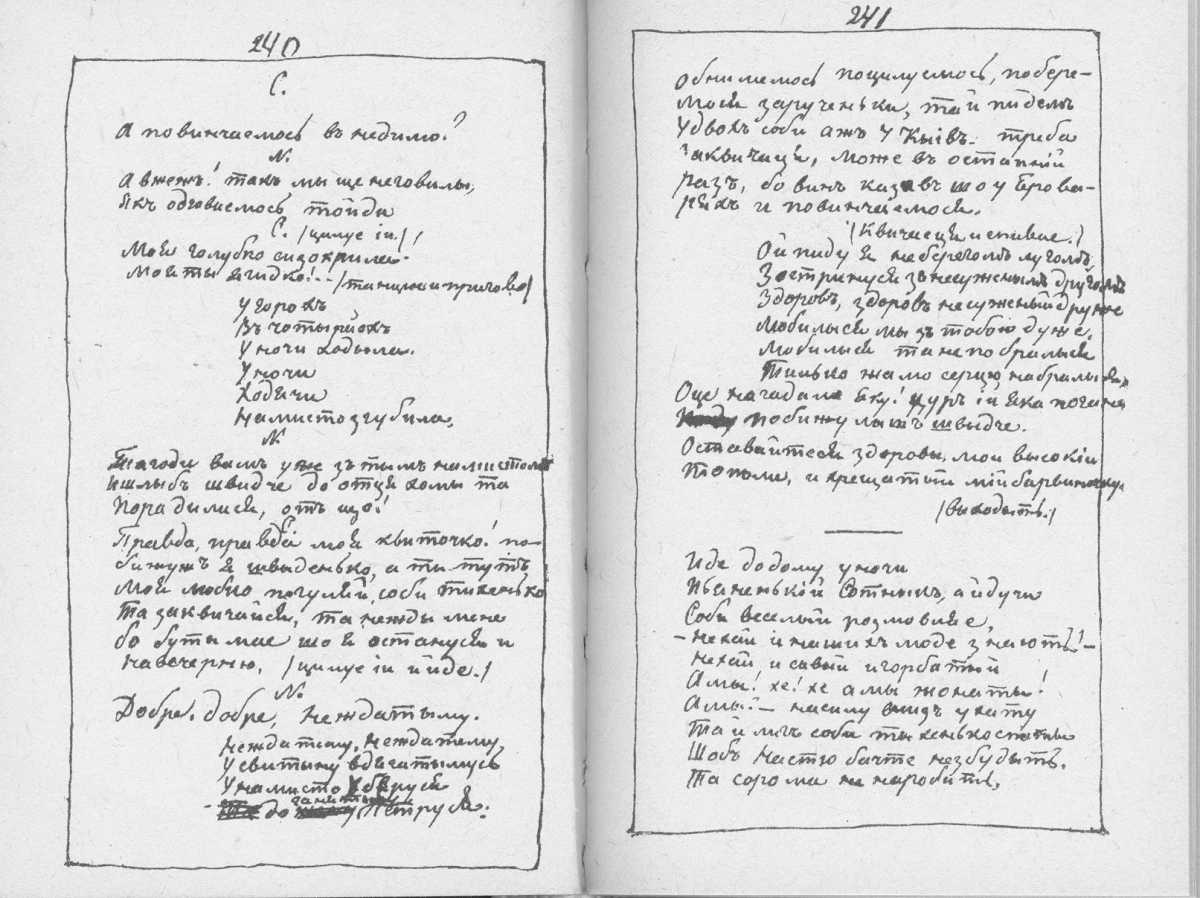 240
С.
А повинчаемось въ недилю?
N.
Авжежъ! такъ мы ще неговилы,
Якъ одговиемось тойди
С. /цилує іи/
Моя голубко сизокрила
Моя ты ягидко!.. /танцює и приговор/
У горохъ
Въ чотырйохъ
Уночи ходыла.
Уночи
Ходячи
Намисто згубила,
N
Та годи вамъ уже зъ тымъ намистомъ
ишлыбъ швидче до отця хомы та
Порадилися, отъ що!
С.
Правда, правда моя квиточко! по-
бижужъ я швыденько, а ти тутъ
Моя любко погуляй соби тихенько
Та заквичайся, та нежды мене
бо бути мае що я остануся и
на вечерню, /цилує іи и йде./
N.
Добре, добре, неждатыму.
Неждатыму, неждатыму,
У свитыну вдягатымусь
У намисто уберуся
до Петруся.
241
Обнимемось поцилуемось, побере-
мося за рученьки, та й пидемъ
Удвохъ соби ажъ у Кыівъ. треба
Заквичаця, може въ останній
разъ, бо винъ казавъ шо у Брова-
ряхъ и повинчаемося.
/Квичаєця и спивае./
Ой пиду я не берегомъ лугомъ
Зостринуся зъ несуженымъ другомъ
Здоровъ, здоровъ несуженый друже
Любилыся мы зъ тобою дуже.
Любилыся та не побралыся
Тилько жалю серцю набралыся,
Оце нагадала яку! цуръ ій яка погана
побижу лишъ швидче.
Оставайтеся здоровы мои высокіи
Тополи, и хрещатый мій барвиночку.
/выходыть./
Иде додому уночи
Пьяненькій Сотныкъ, а йдучи
Соби веселый розмовляе,
- нехай и нашихъ люде знають! -
Нехай, и сивый и горбатый
А мы! хе! хе а мы жонаты!
А мы! - насилу влизъ у хату
Та й лигъ соби тыхенько спаты
Шобъ Настю бачте незбудыть.
Та сорома не наробить,